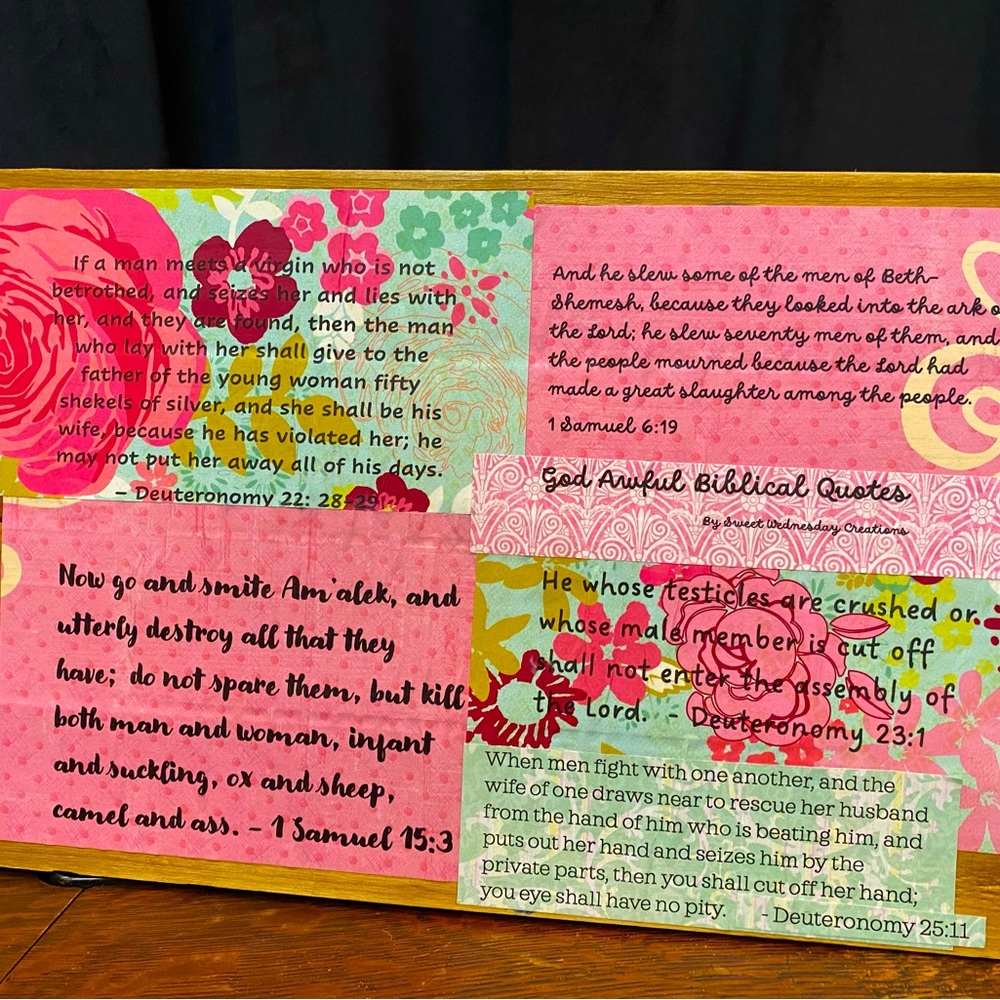 If a man meets a virgin who is not
betrothed, and seizes her and lies with
her, and they are found, then the man
who lay with her shall give to the
father of the young woman fifty
shekels of silver, and she shall be his
wife, because he has violated her; he
may not put her away all of his days.
– Deuteronomy 22: 28-29
And he slew some of the men of Beth-
Shemesh, because they looked into the ark o
the Lord; he slew seventy men of them, and
the people mourned because the Lord had
made a great slaughter among the people.
1 Samuel 6:19
God Awful Biblical Quotes
By Sweet Wednesday Creations
Now go and smite Am'alek, and
utterly destroy all that they
have; do not spare them, but kill
both man and woman, infant
and suckling, ox and sheep,
camel and ass. – 1 Samuel 15:3
He whose testicles are crushed or
whose male member is cut off
shall not enter the assembly of
the Lord. - Deuteronomy 23:1
When men fight with one another, and the
wife of one draws near to rescue her husband
from the hand of him who is beating him, and
puts out her hand and seizes him by the
private parts, then you shall cut off her hand;
you eye shall have no pity. - Deuteronomy 25:11